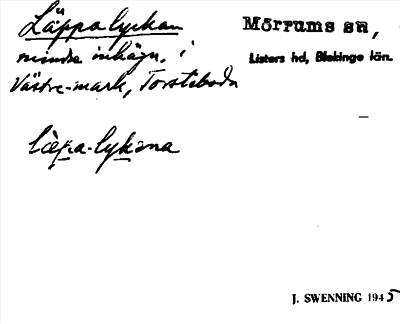 Läppalyckan
mindre inhägn. i
Västre-mark, Torstaboda
Mörrums sn,
Listers hd, Blekinge län.
J. SWENNING 1945